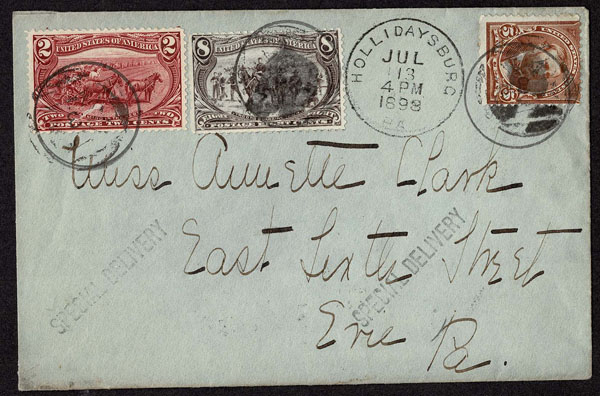 2 2
UNITED STATES OF AMERICA
POSTAGE TWO CENTS
8 8
UNITED STATES OF AMERICA
POSTAGE EIGHT CENTS
HOLLIDAYSBURG
JUL
13
4 PM
1898
PA.
Miss Annette Clark
East Sixth Street
Erie Pa.
SPECIAL DELIVERY
SPECIAL DELIVERY